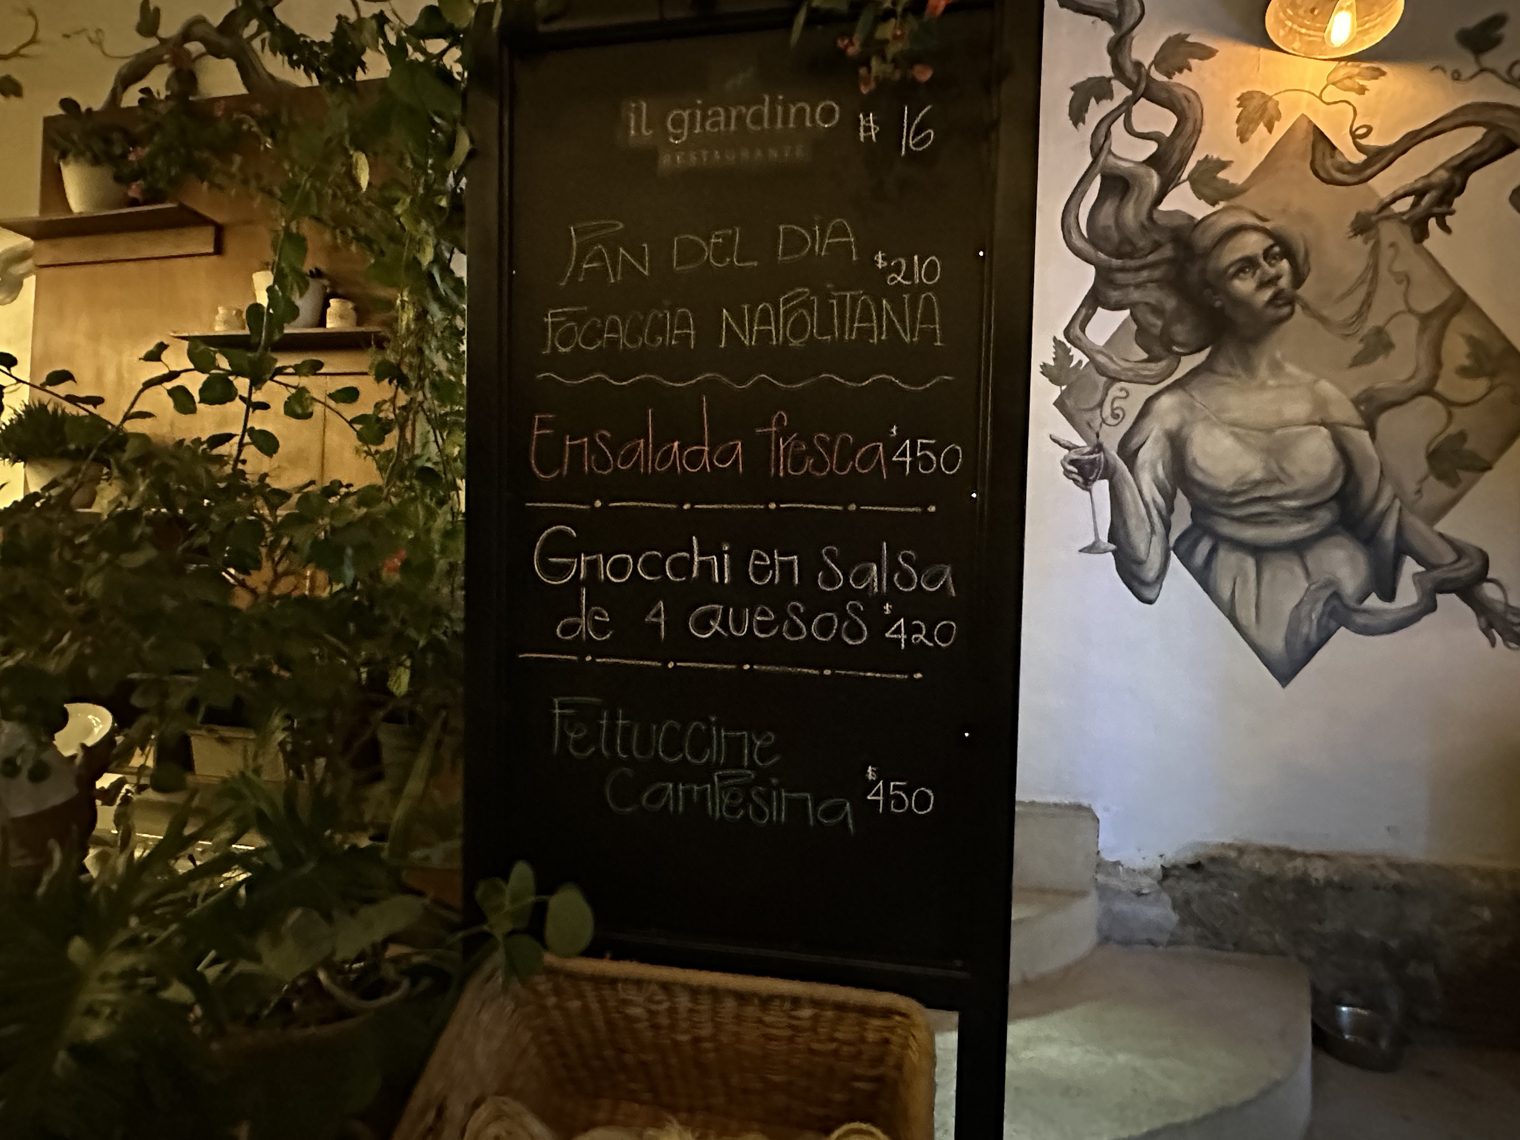 il giardino # 16
RESTAURANTE
PAN DEL DIA $210
FOCACCIA NAPOLITANA
Ensalada fresca $450
Gnocchi en salsa
de 4 quesos $420
Fettuccine
Campesina $450